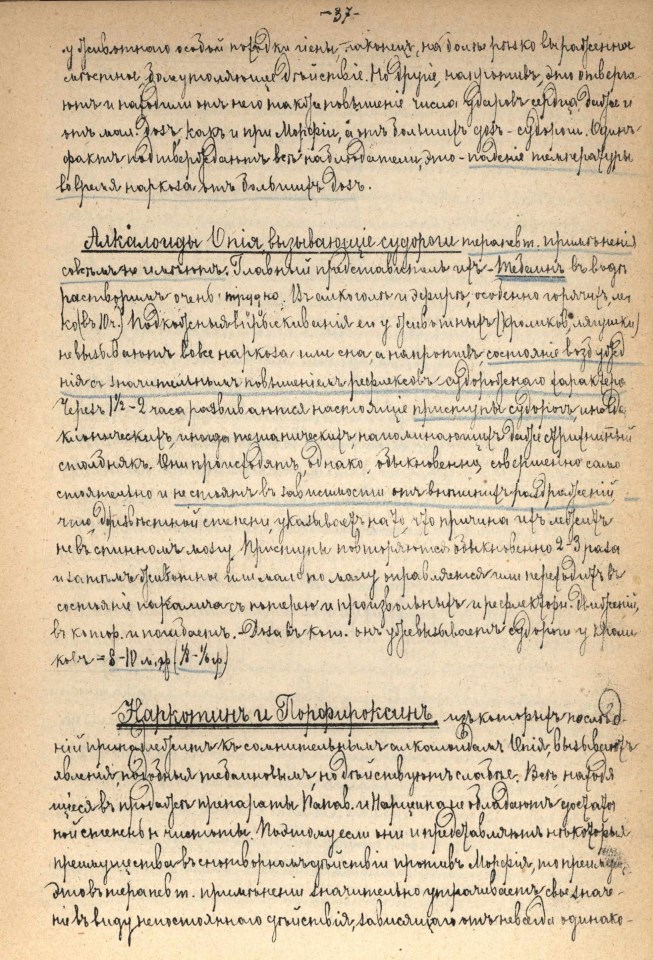 -37-
у животнаго особой походки гіены наконецъ, на болѣе рѣзко выраженное
мѣстное, болеутоляющее дѣйствіе. Но другіе, напротивъ, это отверга-
ютъ и находили отъ него также повышеніе числа ударовъ сердца даже и
отъ мал. дозъ какъ и при Морфіи, а отъ большихъ дозъ - судороги. Одинъ
фактъ подтверждаютъ всѣ наблюдатели, это - паденіе температуры
во время наркоза отъ большихъ дозъ.
Алкалоиды Опія, вызывающіе судороги терапевт. примѣненія
совсѣмъ не имѣютъ. Главный представитель ихъ - Тебаинъ въ водѣ
растворимъ очень трудно. Въ алкоголѣ и эфирѣ, особенно горячихъ, лег
ко (въ 10 ч.) Подкожныя впрыскиванія его у животныхъ (кроликовъ, лягушки)
не вызываютъ вовсе наркоза или сна, а напротивъ, состояніе возбужде
нія съ значительнымъ повышеніемъ рефлексовъ судорожнаго характера
Черезъ 1½-2 часа развиваются настоящіе приступы судорогъ, иногда
клоническихъ, иногда тетаническихъ напоминающихъ даже стрихнинный
столбнякъ. Они происходятъ, однако, обыкновенно совершенно само
стоятельно и не стоятъ въ зависимости отъ внѣшнихъ раздраженій
что, до извѣстной степени, указываетъ на то, что причина ихъ лежитъ
не въ спинномъ мозгу. Приступы повторяются обыкновенно 2-3 раза
и затѣмъ животное или мало по малу оправляется или переходитъ въ
состояніе паралича съ потерею и произвольныхъ и рефлектори. движеній,
въ котор. и погибаетъ. Доза въ кот. онъ уже вызываетъ судороги у кроли
ковъ = 8-10 м.гр (⅛-⅙ гр.)
Наркотинъ и Порфироксинъ, изъ которыхъ послѣд-
ній принадлежитъ къ сомнительнымъ алкалоидамъ Опія, вызываютъ
явленія подобныя тебаиновымъ, но дѣйствуютъ слабѣе. Всѣ находя
щіеся въ продажѣ препараты Папав. и Нарцеина не обладаютъ достаточ
ной степенью чистоты. Поэтому если они и представляютъ нѣкоторыя
преимущества въ снотворномъ дѣйствіи противъ Морфія, то преимущ.
это въ терапевт. примѣненіи значительно утрачиваетъ свое значе-
ніе въ виду непостояннаго дѣйствія, зависящаго отъ не всегда одинако-